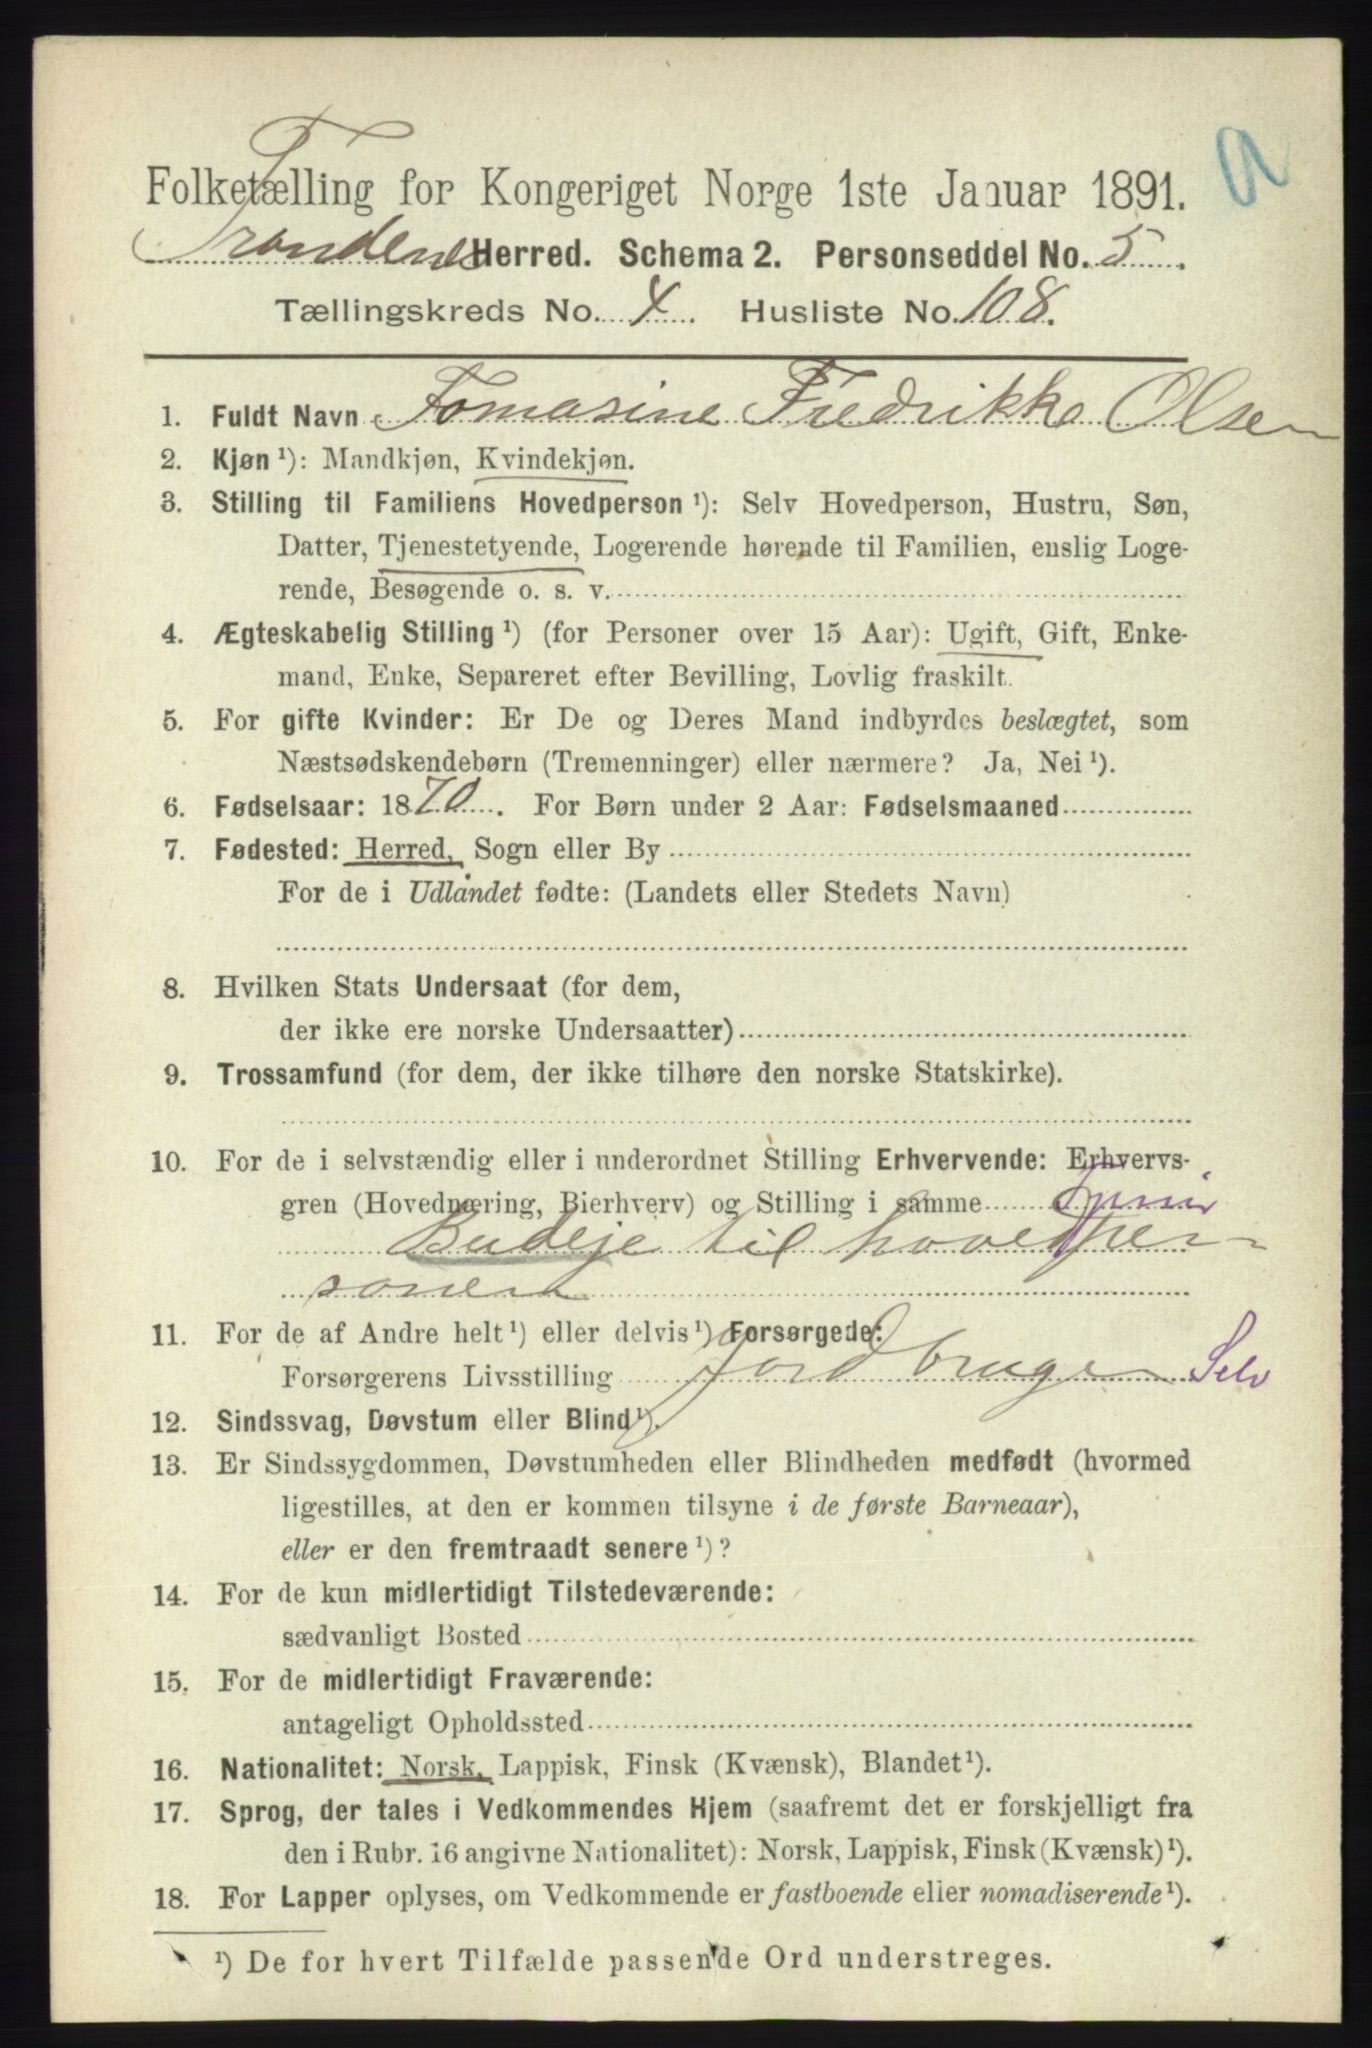 Folketælling for Kongeriget Norge 1ste Januar 1891.
Trondenes Herred. Schema 2. Personseddel No. 5.
Tællingskreds No. 4. Husliste No. 108.
1. Fuldt Navn Tomasine Fredrikke Olsen
2. Kjøn ¹): Mandkjøn, Kvindekjøn.
3. Stilling til Familiens Hovedperson ¹): Selv Hovedperson, Hustru, Søn,
Datter, Tjenestetyende, Logerende hørende til Familien, enslig Loge-
rende, Besøgende o. s. v.
4. Ægteskabelig Stilling ¹) (for Personer over 15 Aar): Ugift, Gift, Enke-
mand, Enke, Separeret efter Bevilling, Lovlig fraskilt.
5. For gifte Kvinder: Er De og Deres Mand indbyrdes beslægtet, som
Næstsødskendebørn (Tremenninger) eller nærmere? Ja, Nei ¹).
6. Fødselsaar: 1870. For Børn under 2 Aar: Fødselsmaaned
7. Fødested: Herred, Sogn eller By
For de i Udlandet fødte: (Landets eller Stedets Navn)
8. Hvilken Stats Undersaat (for dem,
der ikke ere norske Undersaatter)
9. Trossamfund (for dem, der ikke tilhøre den norske Statskirke).
10. For de i selvstændig eller i underordnet Stilling Erhvervende: Erhvervs-
gren (Hovednæring, Bierhverv) og Stilling i samme
Budeje til hovedper-
sonen
11. For de af Andre helt ¹) eller delvis ¹) Forsørgede:
Forsørgerens Livsstilling Jordbruger Selv
12. Sindssvag, Døvstum eller Blind ¹).
13. Er Sindssygdommen, Døvstumheden eller Blindheden medfødt (hvormed
ligestilles, at den er kommen tilsyne i de første Barneaar),
eller er den fremtraadt senere ¹)?
14. For de kun midlertidigt Tilstedeværende:
sædvanligt Bosted
15. For de midlertidigt Fraværende:
antageligt Opholdssted
16. Nationalitet: Norsk, Lappisk, Finsk (Kvænsk), Blandet ¹).
17. Sprog, der tales i Vedkommendes Hjem (saafremt det er forskjelligt fra
den i Rubr. 16 angivne Nationalitet): Norsk, Lappisk, Finsk (Kvænsk) ¹).
18. For Lapper oplyses, om Vedkommende er fastboende eller nomadiserende ¹).
¹) De for hvert Tilfælde passende Ord understreges.